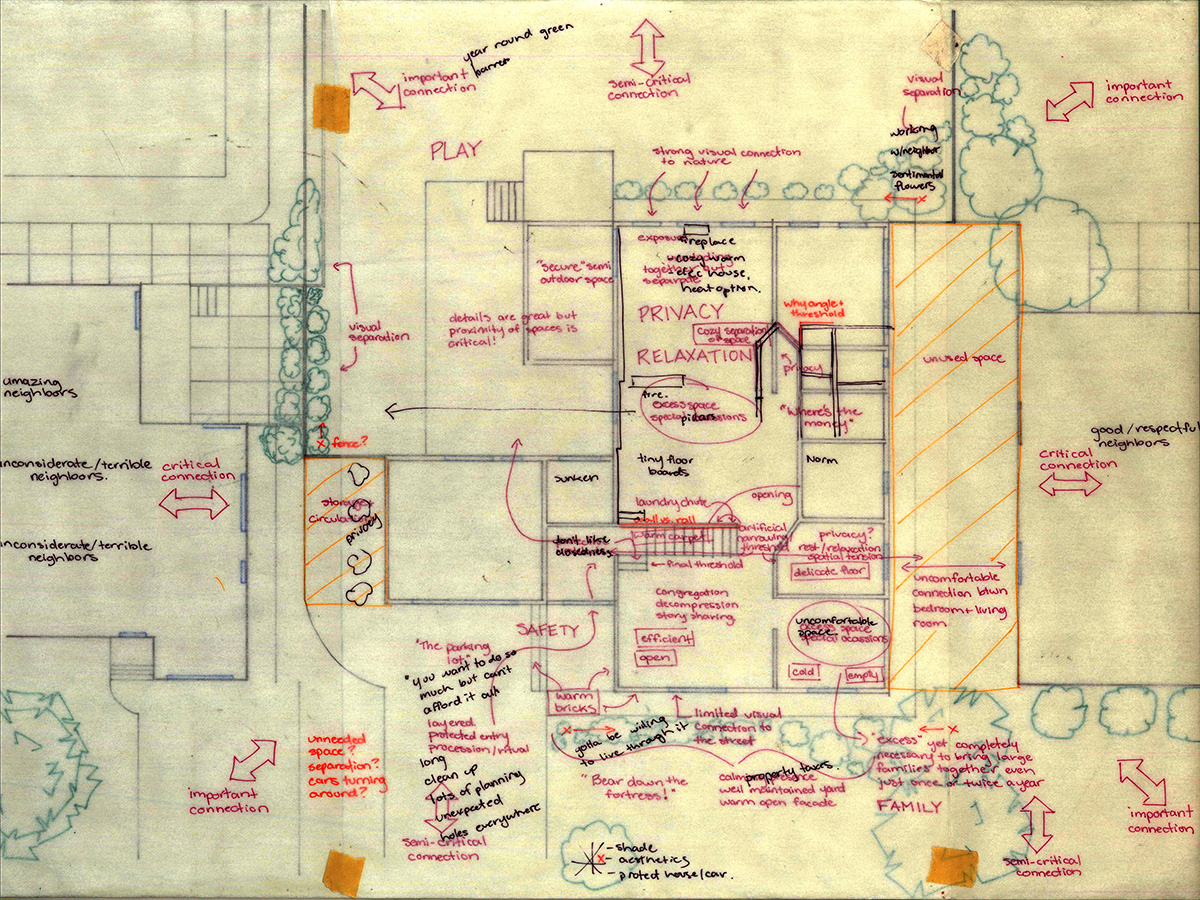 year round green
barrier
important
connection
semi-critical
connection
visual
separation
important
connection
working
w/neighbor
sentimental
flowers
PLAY
strong visual connection
to nature
"secure" semi
outdoor space
fireplace
cozy worm
house,
heat option.
together but
separate
PRIVACY
why angle +
threshold
cozy separation
of space
RELAXATION
privacy
details are great but
proximity of spaces is
critical!
visual
separation
unused space
amazing
neighbors
fire.
excess space
special occassions
pillars
"Where's the
money"
fence?
good/respectful
neighbors
inconsiderate/terrible
neighbors.
critical
connection
critical
connection
tiny floor
boards
Norm
sunken
storage
circulation
privacy
laundry chute
opening
warm carpet
artificial
narrowing
threshold
privacy?
rest/relaxation
spatial tension
delicate floor
don't like
closedness
final threshold
inconsiderate/terrible
neighbors
uncomfortable
connection btwn
bedroom + living
room
congregation
decompression
story sharing
efficient
open
uncomfortable
space.
special ocassions
cold
empty
SAFETY
"The parking
lot"
"you want to do so
much but can't
afford it all"
warm
bricks
layered
protected entry
procession/ritual
long
clean up
lots of planning
unexpected
holes everywhere
gotta be willing
to live through it
limited visual
connection to
the street
unneeded
space?
separation?
cars turning
around?
"Bear down the
fortress!"
property taxes.
well maintained yard
warm open facade
"excess" yet completely
necessary to bring large
families together even
just once or twice a year
FAMILY
important
connection
important
connection
semi-critical
connection
semi-critical
connection
- shade
- aesthetics
- protect house/car.